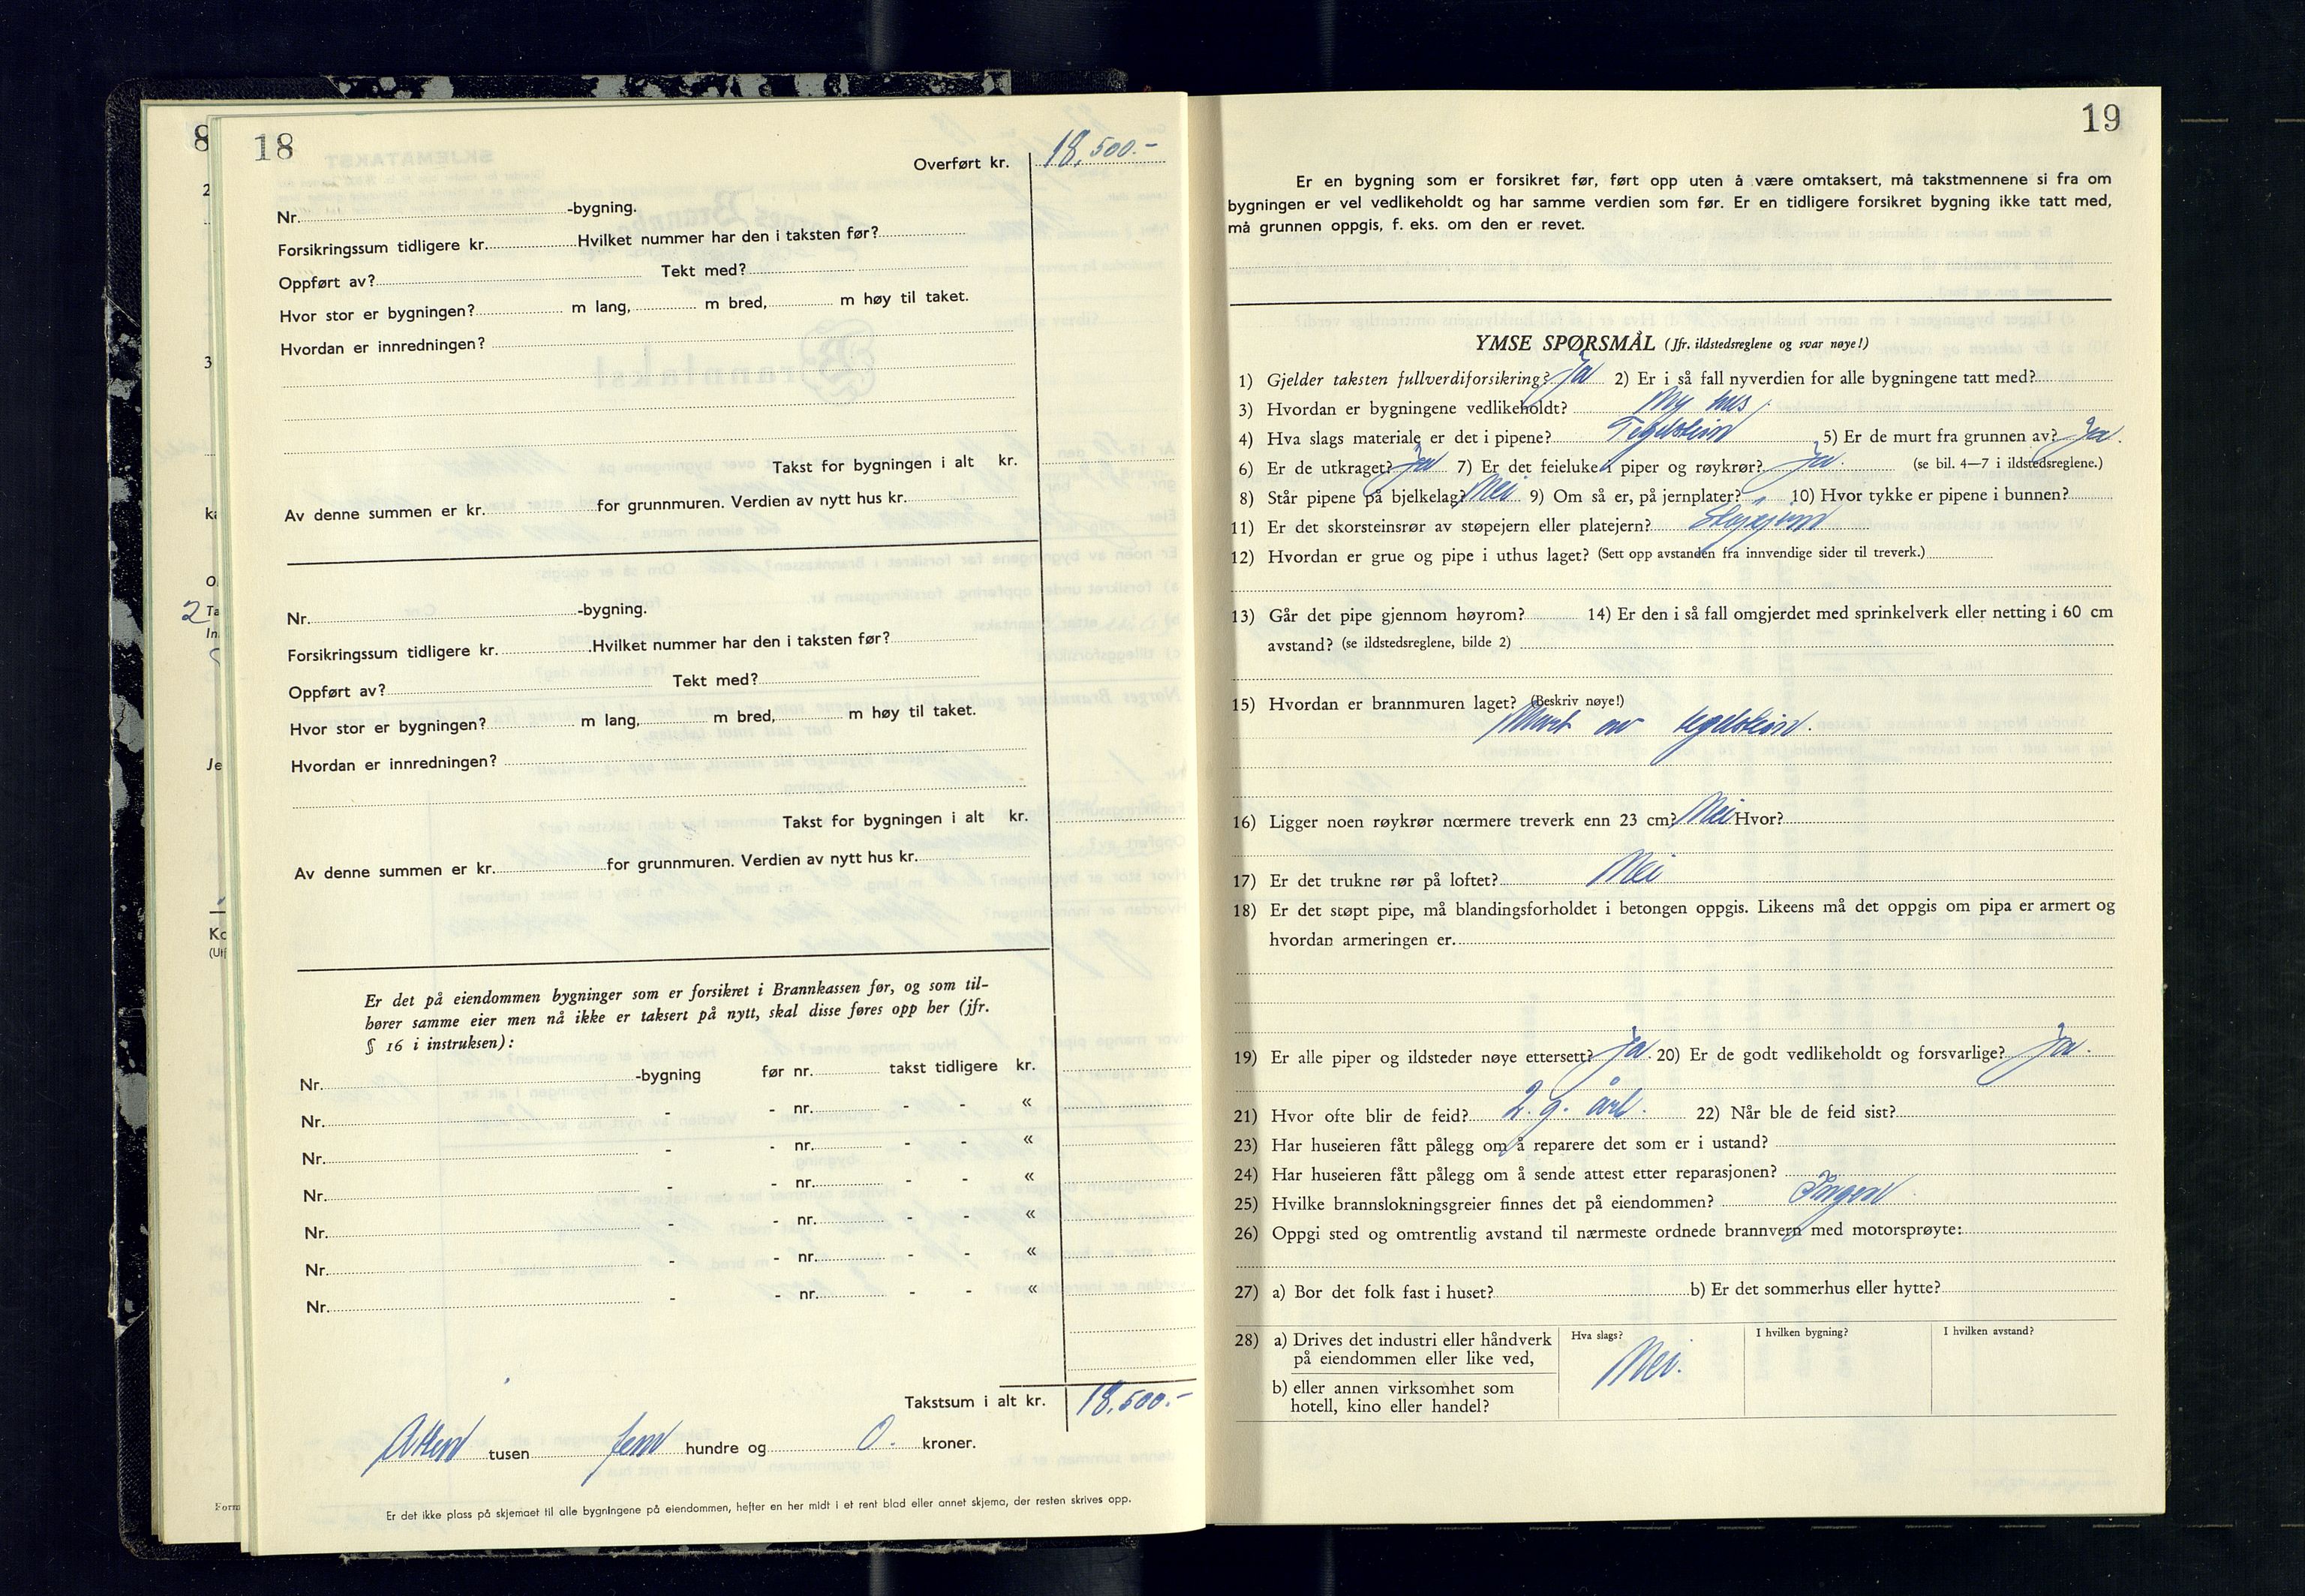 18
Overført kr. 18.500.-
Nr. -bygning.
Forsikringssum tidligere kr. Hvilket nummer har den i taksten før?
Oppført av? Tekt med?
Hvor stor er bygningen? m lang, m bred, m høy til taket.
Hvordan er innredningen?
Takst for bygningen i alt kr.
Av denne summen er kr. for grunnmuren. Verdien av nytt hus kr.
Nr. -bygning.
Forsikringssum tidligere kr. Hvilket nummer har den i taksten før?
Oppført av? Tekt med?
Hvor stor er bygningen? m lang, m bred, m høy til taket.
Hvordan er innredningen?
Takst for bygningen i alt kr.
Av denne summen er kr. for grunnmuren. Verdien av nytt hus kr.
Er det på eiendommen bygninger som er forsikret i Brannkassen før, og som til-
hører samme eier men nå ikke er taksert på nytt, skal disse føres opp her (jfr.
§ 16 i instruksen):
Nr. -bygning før nr. takst tidligere kr.
Nr. - - nr. - - «
Nr. - - nr. - - «
Nr. - - nr. - - «
Nr. - - nr. - - «
Nr. - - nr. - - «
Nr. - - nr. - - «
Takstsum i alt kr. 18.500.-
Atten tusen fem hundre og 0. kroner.
Er det ikke plass på skjemaet til alle bygningene på eiendommen, hefter en her midt i et rent blad eller annet skjema, der resten skrives opp.
8
2
3
ka
O
2 Ta
In
Je
Ko
(Utf
Form
19
Er en bygning som er forsikret før, ført opp uten å være omtaksert, må takstmennene si fra om
bygningen er vel vedlikeholdt og har samme verdien som før. Er en tidligere forsikret bygning ikke tatt med,
må grunnen oppgis, f. eks. om den er revet.
YMSE SPØRSMÅL (Jfr. ildstedsreglene og svar nøye!)
1) Gjelder taksten fullverdiforsikring? Ja 2) Er i så fall nyverdien for alle bygningene tatt med?
3) Hvordan er bygningene vedlikeholdt? Ny hus
4) Hva slags materiale er det i pipene? Tegelstein 5) Er de murt fra grunnen av? Ja.
6) Er de utkraget? Ja 7) Er det feieluke i piper og røykrør? Ja. (se bil. 4—7 i ildstedsreglene.)
8) Står pipene på bjelkelag? Nei 9) Om så er, på jernplater? 10) Hvor tykke er pipene i bunnen?
11) Er det skorsteinsrør av støpejern eller platejern? Støpejern
12) Hvordan er grue og pipe i uthus laget? (Sett opp avstanden fra innvendige sider til treverk.)
13) Går det pipe gjennom høyrom? 14) Er den i så fall omgjerdet med sprinkelverk eller netting i 60 cm
avstand? (se ildstedsreglene, bilde 2)
15) Hvordan er brannmuren laget? (Beskriv nøye!)
Murt av tegelstein.
16) Ligger noen røykrør nærmere treverk enn 23 cm? Nei Hvor?
17) Er det trukne rør på loftet? Nei
18) Er det støpt pipe, må blandingsforholdet i betongen oppgis. Likeens må det oppgis om pipa er armert og
hvordan armeringen er.
19) Er alle piper og ildsteder nøye ettersett? Ja. 20) Er de godt vedlikeholdt og forsvarlige? Ja.
21) Hvor ofte blir de feid? 2. g. årl. 22) Når ble de feid sist?
23) Har huseieren fått pålegg om å reparere det som er i ustand?
24) Har huseieren fått pålegg om å sende attest etter reparasjonen?
25) Hvilke brannslokningsgreier finnes det på eiendommen? Ingen
26) Oppgi sted og omtrentlig avstand til nærmeste ordnede brannvern med motorsprøyte:
27) a) Bor det folk fast i huset? b) Er det sommerhus eller hytte?
28) a) Drives det industri eller håndverk Hva slags? I hvilken bygning? I hvilken avstand?
på eiendommen eller like ved,
Nei.
b) eller annen virksomhet som
hotell, kino eller handel?